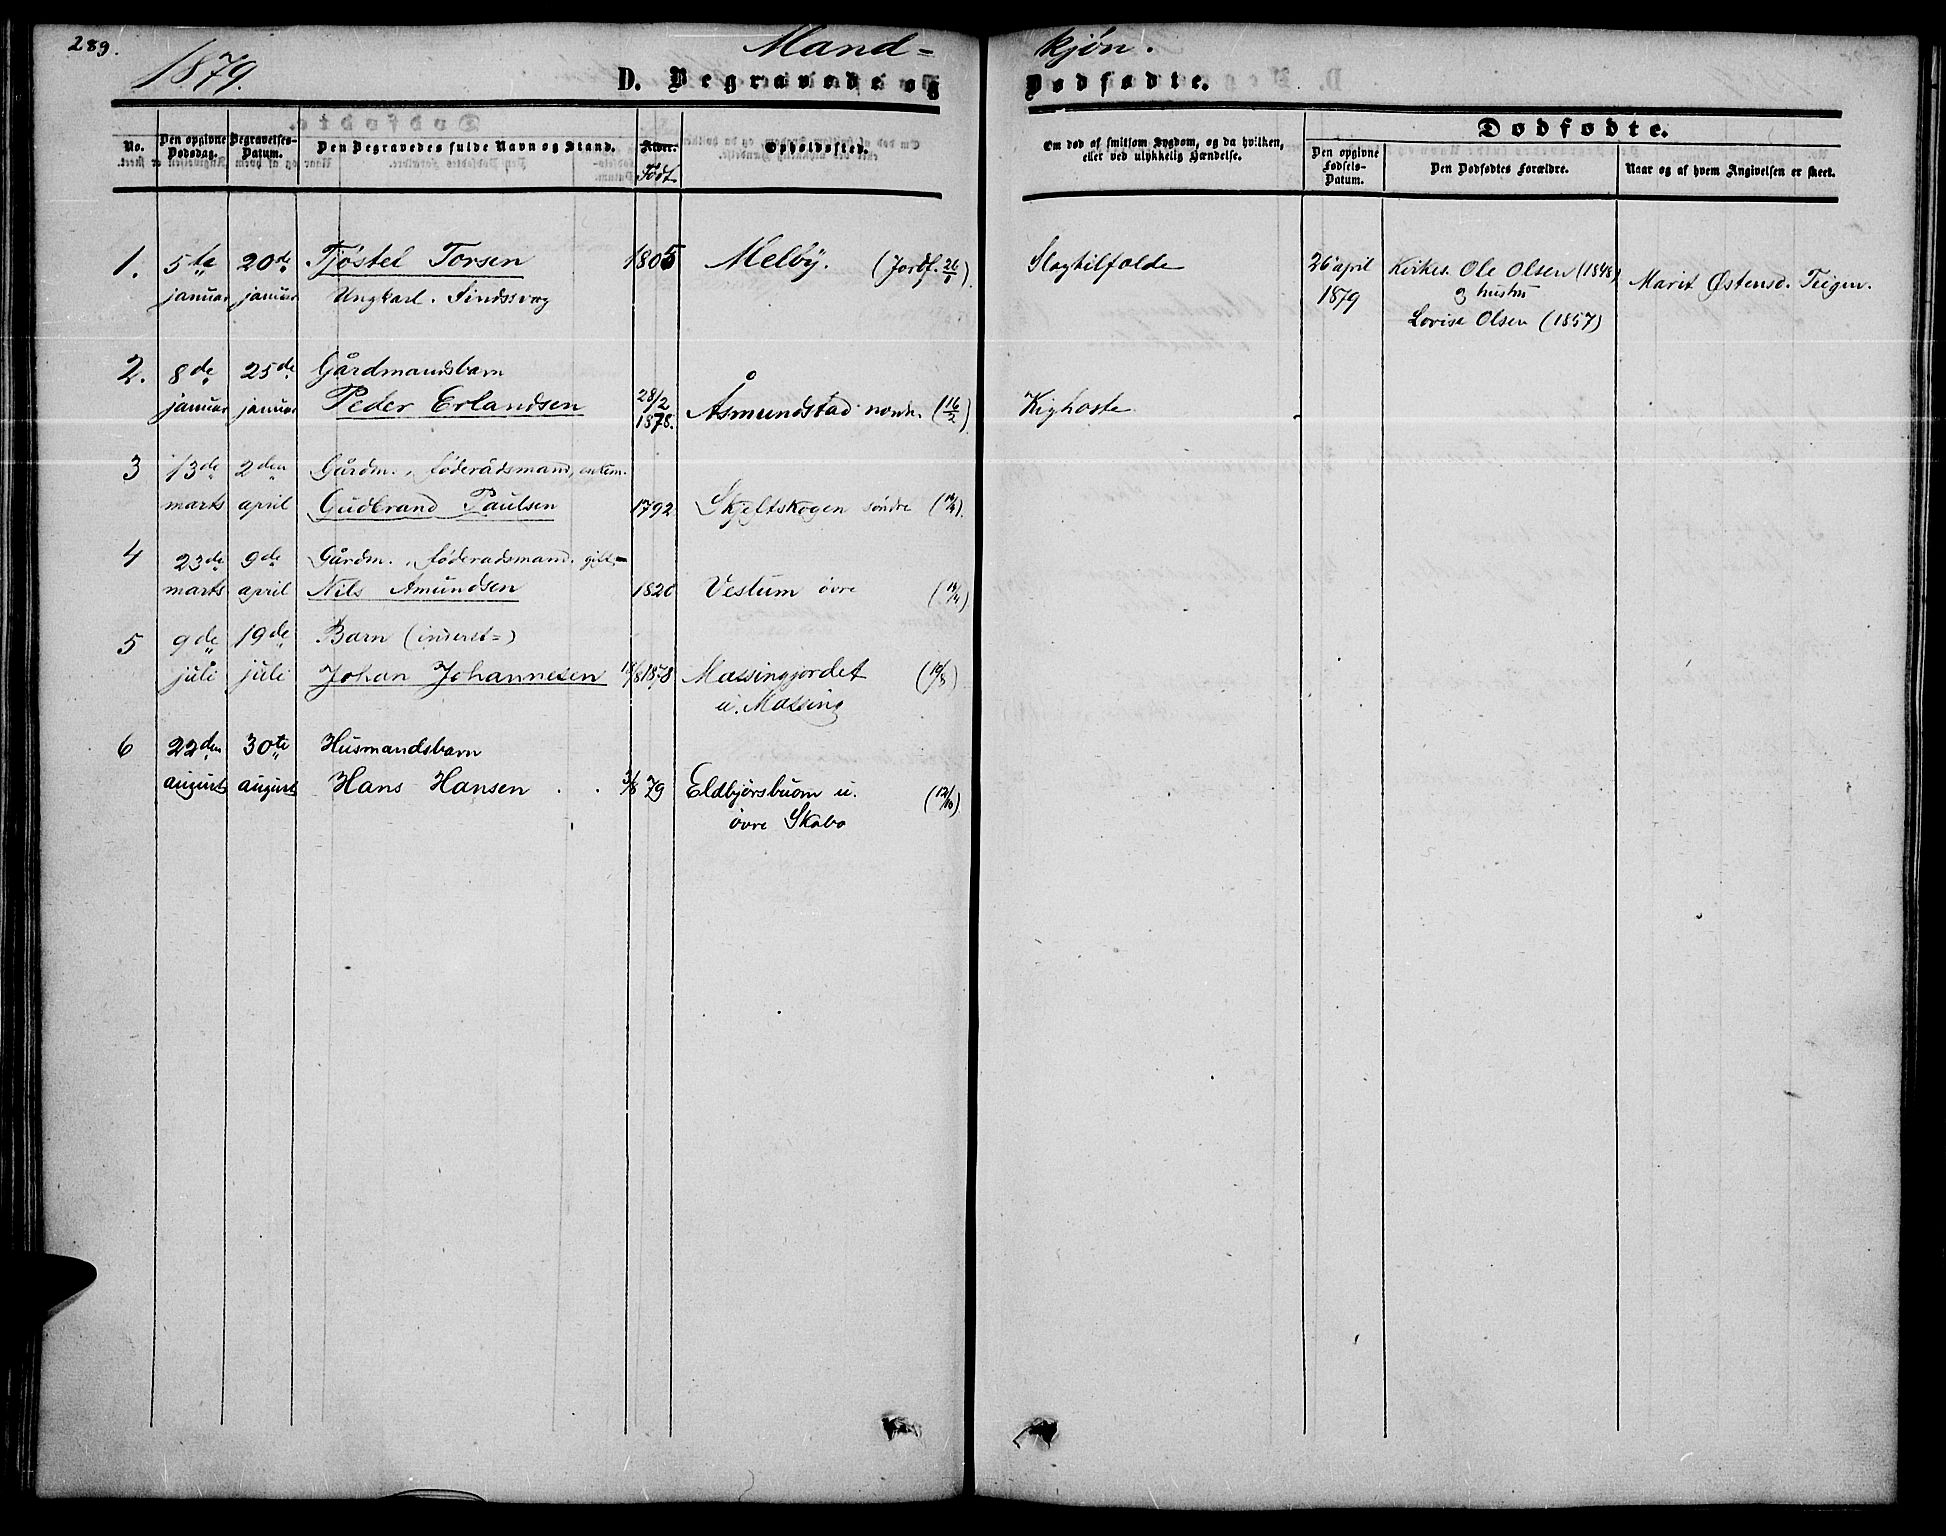 289.
1879.
Mand=
kjøn.
D. Begravede og
Dødfødte.
No.
Den opgivne Dødsdag.
Begravelses-Datum.
Den Begravedes fulde Navn og Stand.
Alder.
Født.
Opholdssted.
Om død af smitsom Sygdom, og da hvilken,
eller ved ulykkelig Hændelse.
Dødfødte.
Den opgivne Fødsels-Datum.
Den Dødfødtes Forældre.
Naar og af hvem Angivelsen er skeet.
1. 5te 20de Tjøstel Torsen 1805 Melby. (Jordf. 26/1). Slagtilfælde
januar januar Ungkarl. Sindssvag
26 april
1879
Kirkes. Ole Olsen (1848)
og hustru
Lovise Olsen (1857)
Marit Østensd. Teigen.
2. 8de 25de Gårdmandsbarn
januar januar Peder Erlandsen 28/2 1878. Åsmundstad nordr. (16/2). Kighoste
3 13de 2den Gårdm., føderådsmand, enkem.
marts april Gudbrand Paulsen 1792 Skjeltskogen søndre
4 23de 9de Gårdm., føderadsmand. gift.
marts april Nils Amundsen 1820 Vestum övre
5 9de 19de Barn (inderst=)
juli juli Johan Johannesen 1878 Massingjordet (10/8)
u. Massing
6 22den 30te Husmandsbarn
august august Hans Hansen . . 3/8 79 Eldbjørsbuom u. (12/10)
övre Skabo